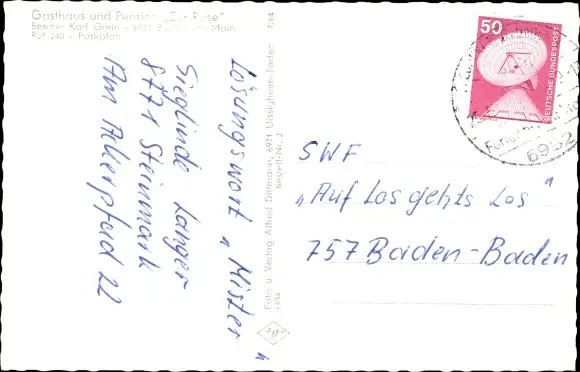 Gasthaus und Pension "Zur Rose"
Besitzer Karl Grein - 6981 am Main
Ruf 240 - Parkplatz
7/64
Lösungswort "Mister"
Sieglinde Langer
8771 Steinmark
Am Ackerpfad 22
Foto u. Verlag Alfred Dittmann, 6971 Uissigheim-Baden
Bestell-Nr. 2
50
DEUTSCHE BUNDESPOST
6982
SWF
"Auf Los gehts Los"
757 Baden-Baden